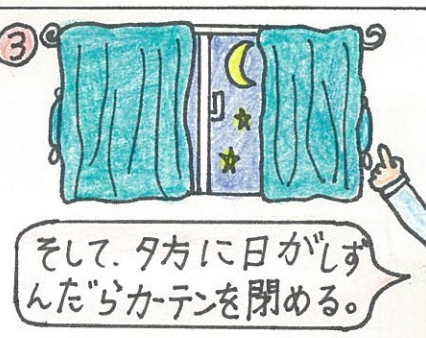 ③
そして、夕方に日がしず
んだらカーテンを閉める。